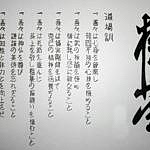 道場訓
一、吾々は心身を錬磨し
確固不抜の心技を極めること
一、吾々は武の神髄を極め
機に発し感に敏なること
一、吾々は質実剛健を以て
克己の精神を涵養すること
一、吾々は礼節を重んじ
長上を敬し粗暴の振舞いを慎むこと
一、吾々は神仏を尊び
謙譲の美徳を忘れざること
一、吾々は知性と体力とを向上させ